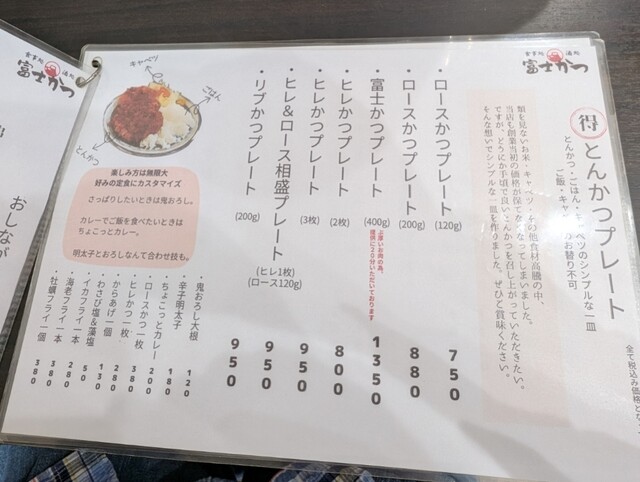 食事処 酒処
富士かつ
得 とんかつプレート
とんかつ・ごはん・キャベツのシンプルな一皿
ご飯・キャベツのお替り不可。
類を見ないお米・キャベツ・その他食材高騰の中、
当店も創業当初の価格が保てなくなってしまいました。
ですが、どうにか手頃で良いとんかつを召し上がっていただきたい。
そんな想いでシンプルな一皿を作りました。ぜひご賞味ください。
・ロースかつプレート (120g) 750
・ロースかつプレート (200g) 880
・富士かつプレート (400g) 1350
上厚いお肉の為、
提供に20分いただいております
・ヒレかつプレート (2枚) 800
・ヒレかつプレート (3枚) 950
・ヒレ&ロース相盛プレート (ヒレ1枚)
(ロース120g) 950
・リブかつプレート (200g) 950
キャベツ
ごはん
とんかつ
楽しみ方は無限大
好みの定食にカスタマイズ
さっぱりしたいときは鬼おろし。
カレーでご飯を食べたいときは
ちょこっとカレー。
明太子とおろしなんて合わせ技も。
・鬼おろし大根 120
・辛子明太子 180
・ちょこっとカレー 200
・ロースかつ一枚 380
・ヒレかつ一枚 280
・からあげ一個 130
・わさび塩&藻塩 50
・イカフライ一本 280
・海老フライ一本 380
・牡蠣フライ一個 380
全て税込み価格とな
食事処 酒処
富士かつ
おしなが